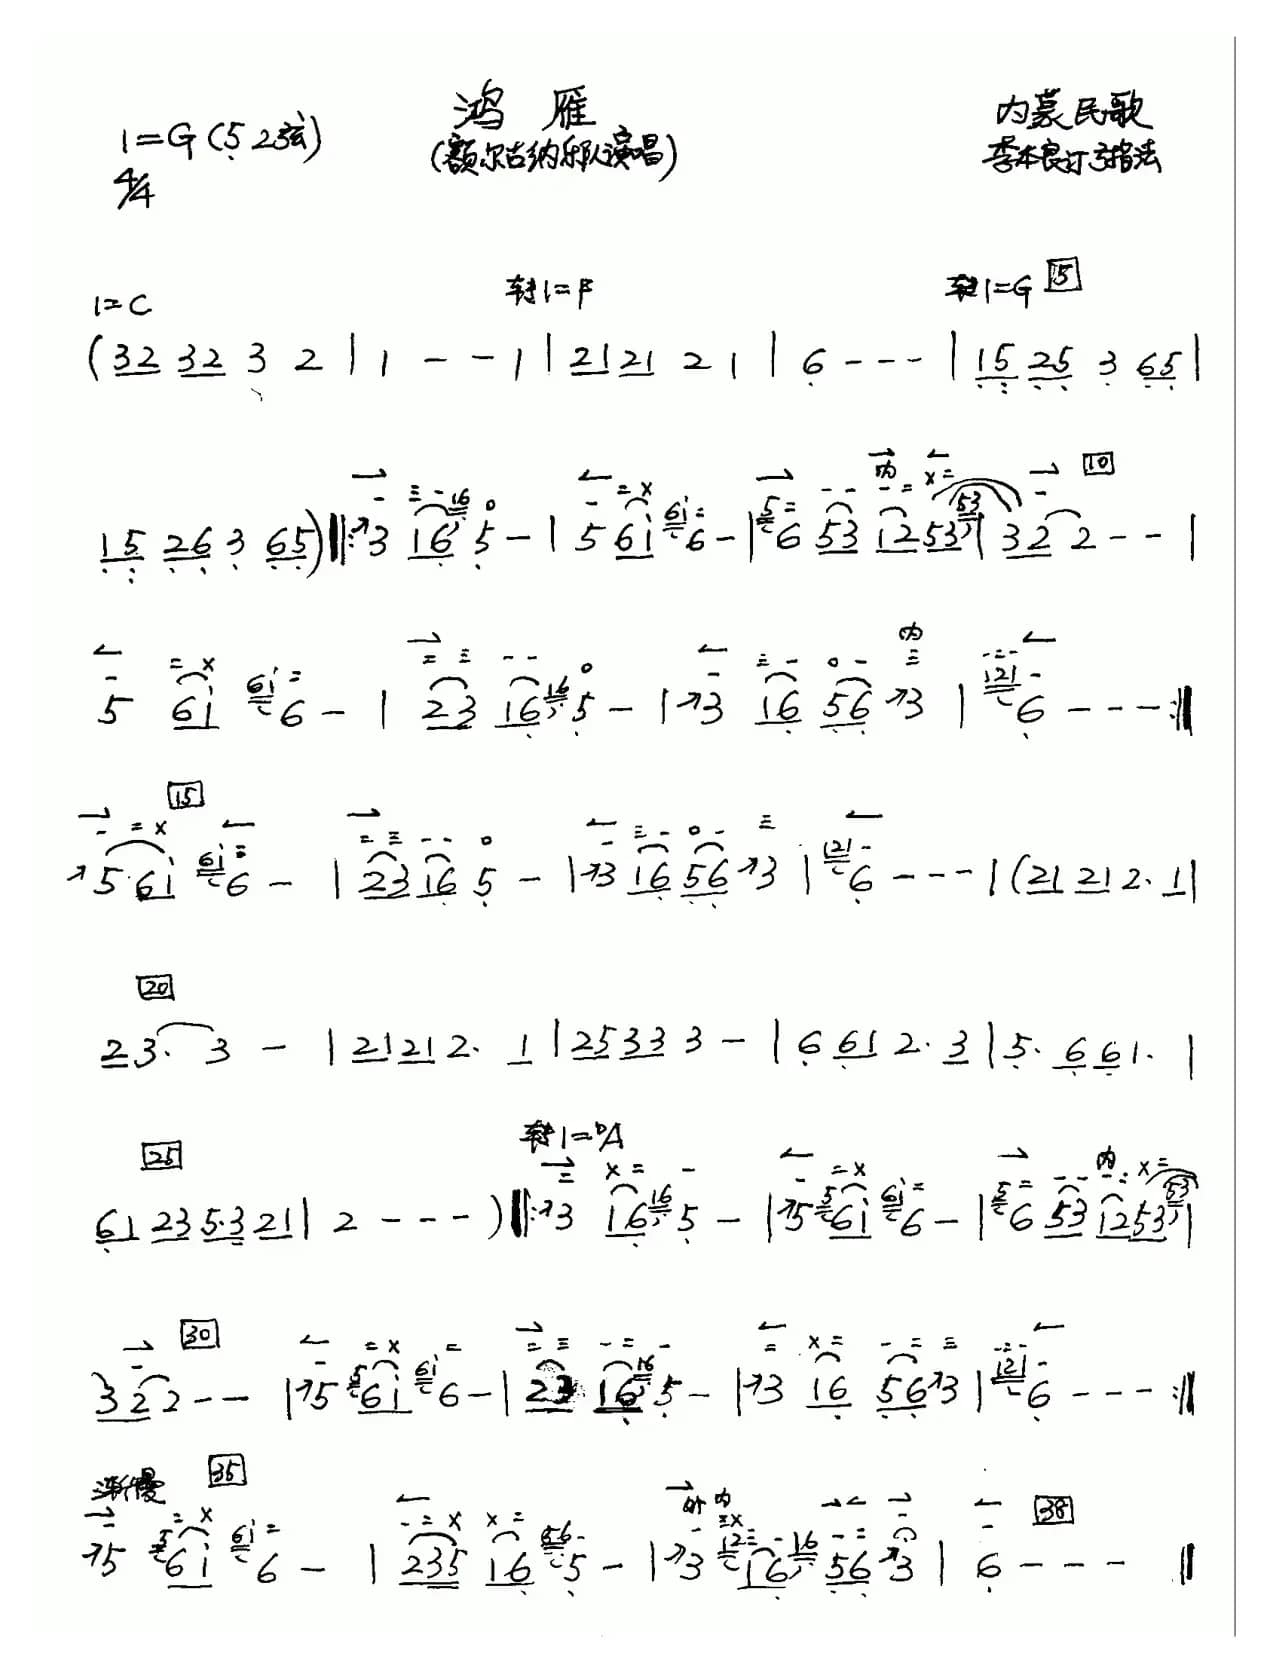 鸿雁
1=G(5 2弦)
(额尔古纳乐队演唱)
内蒙民歌
4/4
李本良订弓指法
1=C 转1=F 转1=G 5
(32 32 3 2 | 1 - - 1 | 21 21 2 1 | 6 - - - | 15 25 3 65 |
10
15 26 3 65)‖: 3 16 16 5 - | 5 61 61 6 - | 5 6 53 12 53 53 | 32 2 - - |
5 61 61 6 - | 23 16 16 5 - | 3 16 56 3 | 121 6 - - - :‖
15
5 61 61 6 - | 23 16 5 - | 3 16 56 3 | 121 6 - - - | (21 21 2. 1 |
20
23. 3 - | 21 21 2. 1 | 25 33 3 - | 6 61 2. 3 | 5. 6 61. |
25 转1=♭A
61 23 5.3 21 | 2 - - - )‖: 3 16 16 5 - | 5 5 61 61 6 - | 5 6 53 12 53 53 |
30
32 2 - - | 5 5 61 61 6 - | 23 16 16 5 - | 3 16 56 3 | 121 6 - - - :‖
渐慢 35 外 内 38
5 5 61 61 6 - | 235 16 56 5 - | 3 12 16 16 56 3 | 6 - - - ‖